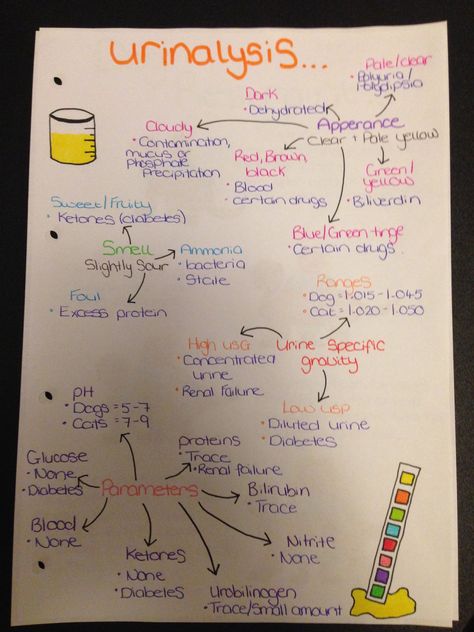 urinalysis...
Pale/clear
• Polyuria/
Polydipsia
Dark
• Dehydrated
Apperance
Clear + Pale yellow
Cloudy
• Contamination,
mucus or
Phosphate
Precipitation
Red, Brown,
black
• Blood
• certain drugs
Green/
yellow
• Biliverdin
Blue/Green tinge
• Certain drugs.
Sweet/Fruity
• Ketones (diabetes)
Smell
Slightly Sour
Ammonia
• bacteria
• Stale
Foul
• Excess protein
Ranges
• Dog = 1.015 - 1.045
• Cat = 1.020 - 1.050
High USG
• Concentrated
urine
• Renal Failure
Urine Specific
gravity
Low USP
• Diluted urine
• Diabetes
pH
• Dogs = 5-7
• Cats = 7-9
Glucose
• None
• Diabetes
proteins
• Trace
• Renal failure
Parameters
Bilirubin
• Trace
Blood
• None
Ketones
• None
• Diabetes
Nitrite
• None
Urobilinogen
• Trace/Small amount